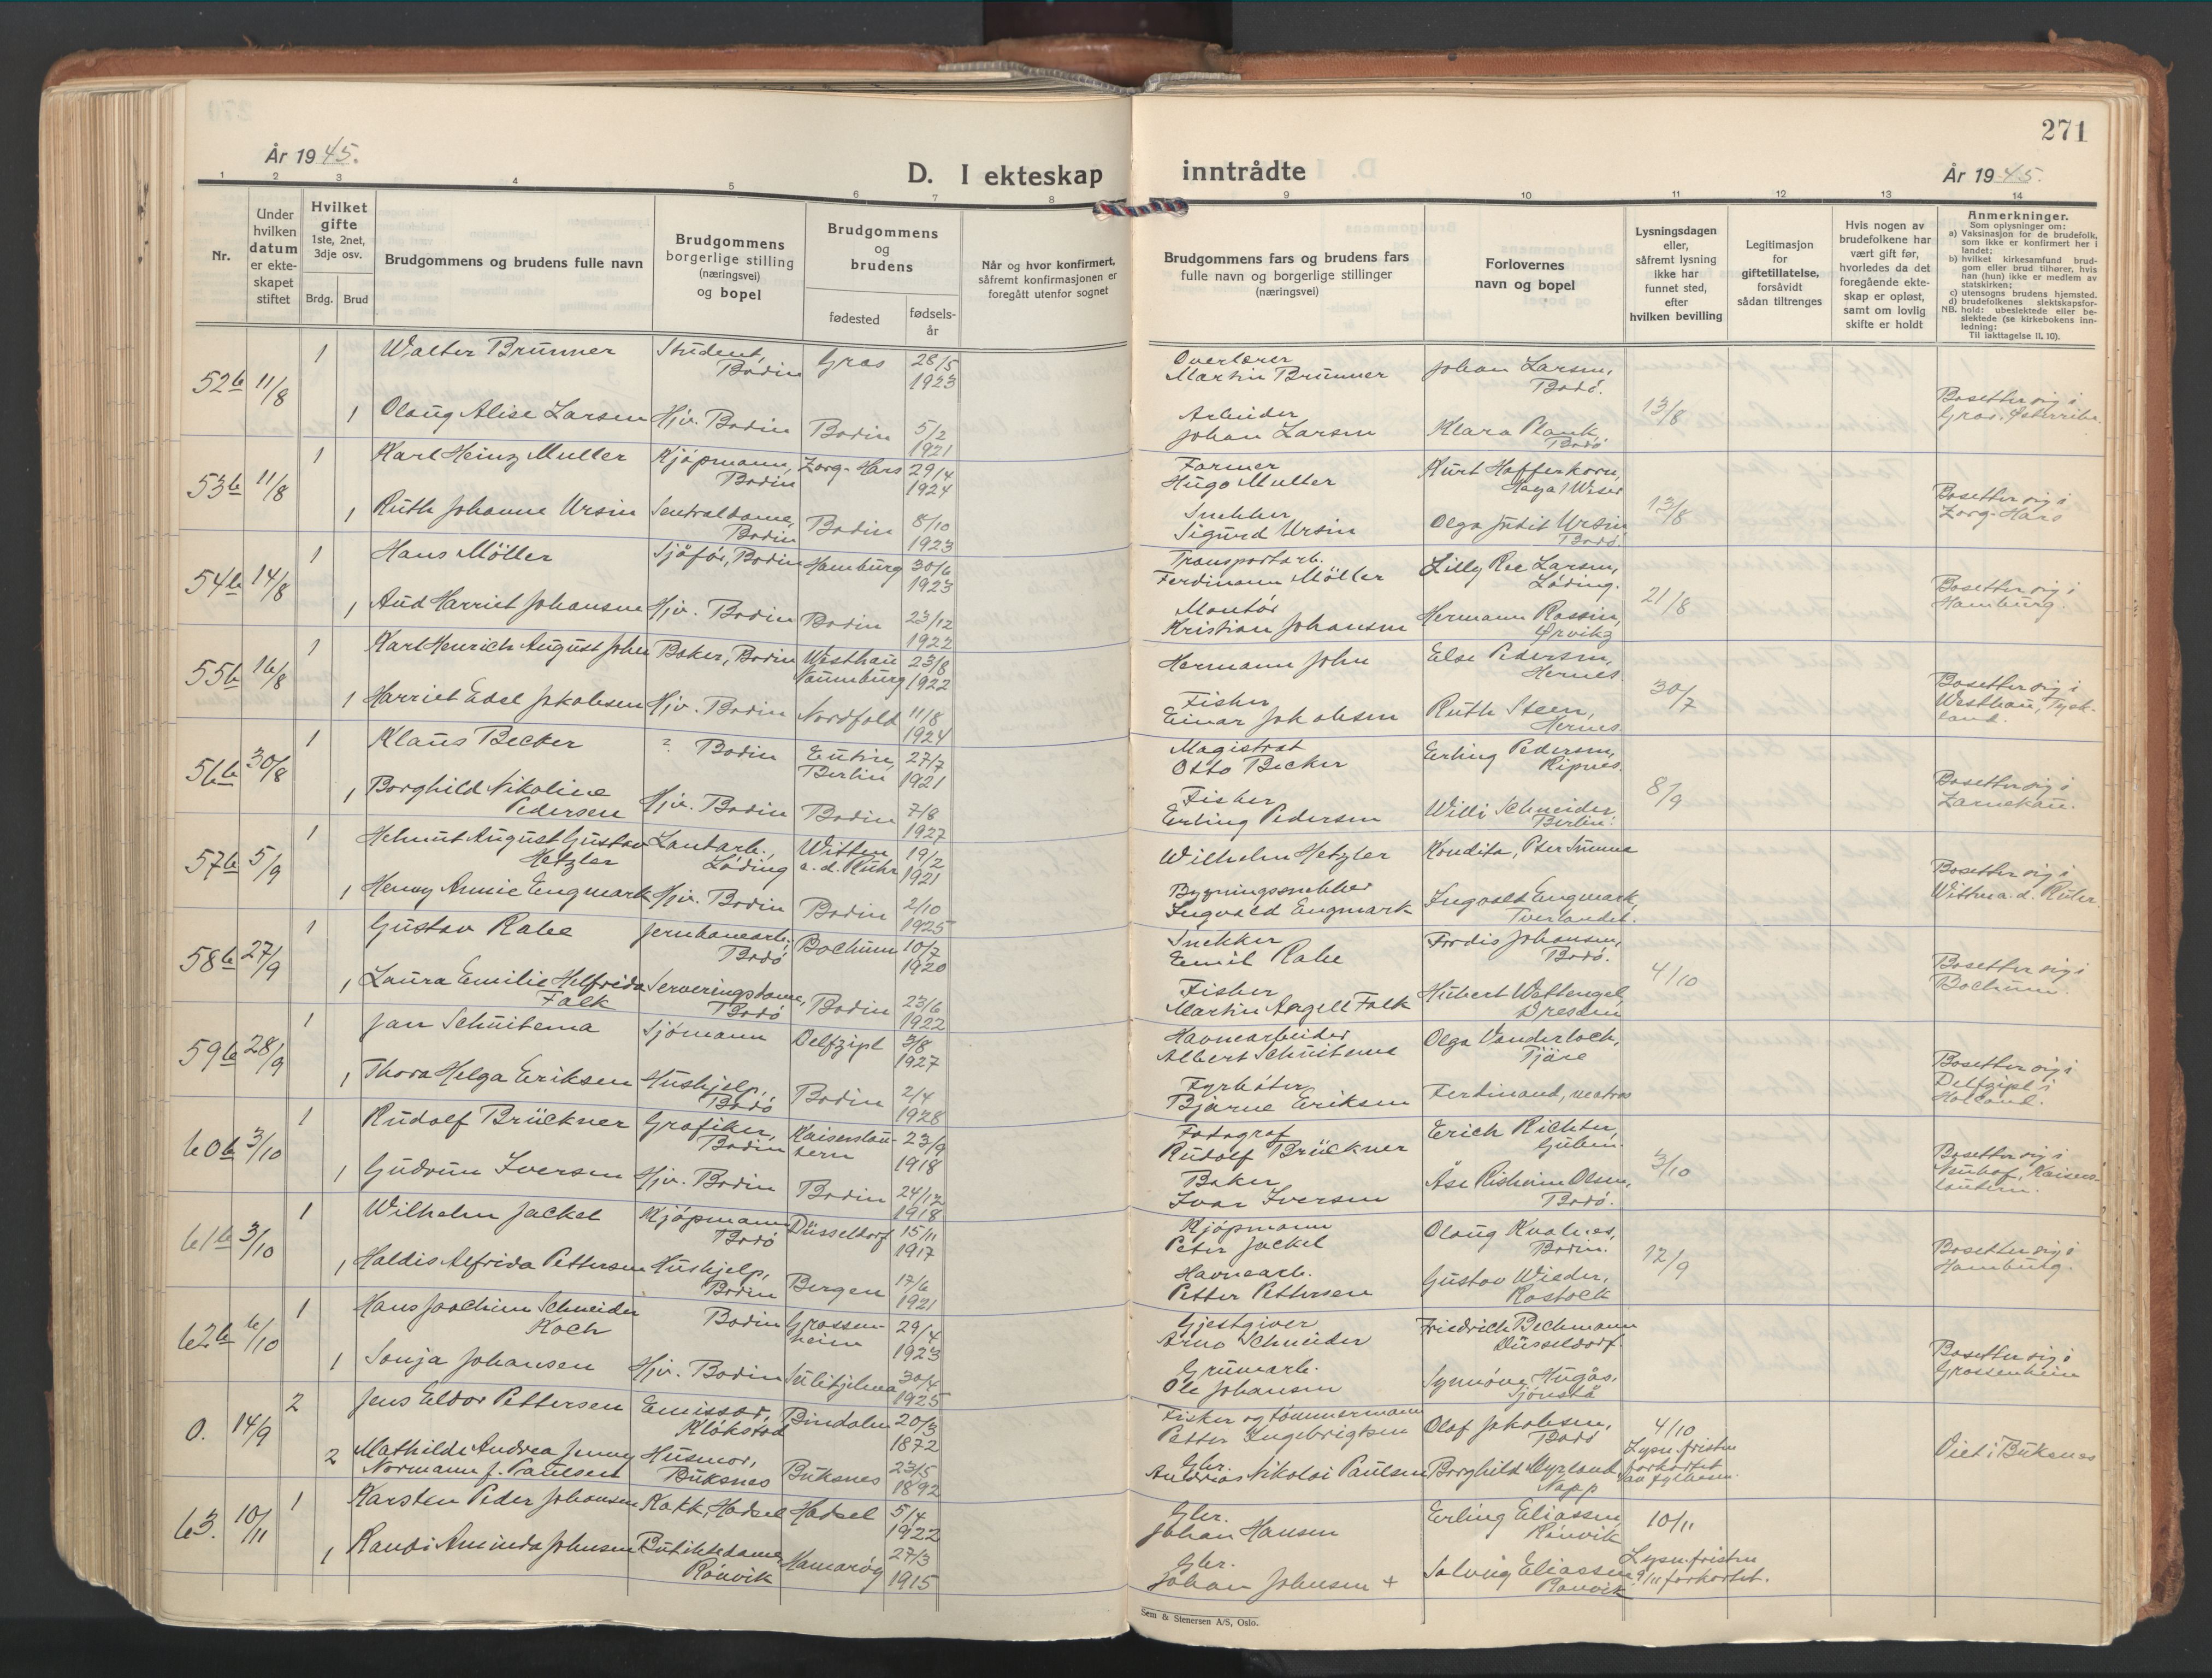 271
År 1945.
D. I ekteskap inntrådte
År 1945.
1 2 3 4 5 6 7 8 9 10 11 12 13 14
Nr.
Under
hvilken
datum
er ekte-
skapet
stiftet
Hvilket
gifte
1ste, 2net,
3dje osv.
Brdg. Brud
Brudgommens og brudens fulle navn
Brudgommens
borgerlige stilling
(næringsvei)
og bopel
Brudgommens
og
brudens
fødested
fødsels-
år
Når og hvor konfirmert,
såfremt konfirmasjonen er
foregått utenfor sognet
Brudgommens fars og brudens fars
fulle navn og borgerlige stillinger
(næringsvei)
Forlovernes
navn og bopel
Lysningsdagen
eller,
såfremt lysning
ikke har
funnet sted,
efter
hvilken bevilling
Legitimasjon
for
giftetillatelse,
forsåvidt
sådan tiltrenges
Hvis nogen av
brudefolkene har
vært gift før,
hvorledes da det
foregående ekte-
skap er opløst,
samt om lovlig
skifte er holdt
Anmerkninger.
Som oplysninger om:
a) Vaksinasjon for de brudefolk,
som ikke er konfirmert her i
landet;
b) hvilket kirkesamfund brud-
gom eller brud tilhører, hvis
han (hun) ikke er medlem av
statskirken;
c) utensogns brudens hjemsted.
d) brudefolkenes slektskapsfor-
hold: ubeslektede eller be-
slektede (se kirkebokens inn-
ledning:
NB. Til iakttagelse II, 10).
52b 11/8 1 Walter Brünner Student, Bodin Gras 28/5 1923 Overlærer Martin Brünner Johan Larsen, Bodö.
1 Olaug Alise Larsen Hjv. Bodin Bodin 5/2 1921 Arbeider Johan Larsen Klara Plank Bodö 13/8 Bosetter sig i Gras. Østerrike.
53b 11/8 1 Karl Heinz Muller Kjöpmann, Bodin Zorg-Hars 29/4 1924 Farmer Hugo Muller Kurt Hafferkorn, Haya/Weser
1 Ruth Johanne Ursin Sentraldame, Bodin Bodin 8/10 1923 Snekker Sigurd Ursin Olga Judit Ursin Bodö. 13/8 Bosetter sig i Zorg-Hars
54b 14/8 1 Hans Möller Sjåfør, Bodin Hamburg 30/6 1923 Transportarb. Ferdinann Möller Lilly Ree Larsen, Löding.
1 Aud Harriet Johansen Hjv. Bodin Bodin 23/12 1922 Montör Kristian Johansen Hermann Rossin, Ørvikg 21/8 Bosetter sig i Hamburg.
55b 16/8 1 Karl Henrich August John Baker, Bodin Westhau Naumburg 23/8 1922 Hermann John Else Pedersen, Hernes
1 Harriet Edel Jakobsen Hjv. Bodin Nordfold 11/8 1924 Fisker Einar Jakobsen Ruth Steen, Hernes 30/7 Bosetter sig i Westhau, Tysk- land.
56b 30/8 1 Klaus Becker ? Bodin Eutin, Berlin 27/7 1921 Magistrat Otto Becker Erling Pedersen, Ripnes.
1 Borghild Nikoline Pedersen Hjv. Bodin Bodin 7/8 1927 Fisker Erling Pedersen Willi Schneider, Berlin. 8/9 Bosetter sig i Zarnekau.
57b 5/9 1 Helmut August Gustav Hetzler Lantarb., Löding Witten a.d. Ruhr 19/2 1921 Wilhelm Hetzler
1 Henny Annie Engmark Hjv. Bodin Bodin 2/10 1925 Bygningssnekker Ingvald Engmark Ingvald Engmark, Tverlandet. Bosetter sig i Witten a.d. Ruhr.
58b 27/9 1 Gustav Rabe Jernbanearb., Bodö Bochum 10/7 1920 Snekker Emil Rabe Fordis Johansen, Bodö.
1 Laura Emilie Helfrida Falk Serveringsdame, Bodö Bodin 23/6 1922 Fisker Martin Angell Falk Hubert Wettengel, Dresden 4/10 Bosetter sig i Bochum.
59b 28/9 1 Jan Schuitema Sjömann Delfzipl 3/8 1927 Havnearbeider Albert Schuitema Olga Vanderloch, Tjäre
1 Thora Helga Eriksen Hushjelp, Bodö Bodin 2/4 1928 Fyrböter Bjarne Eriksen Ferdinand, matros Bosetter sig i Delfzipl i Holland.
60b 3/10 1 Rudolf Brückner Grafiker, Bodin Kaiserslau- tern 23/9 1918 Fotograf Rudolf Brückner Erich Richter, Guben.
1 Gudrun Iversen Hjv. Bodin Bodin 24/12 1918 Baker Ivar Iversen Åse Risheim Olsen, Bodö. 3/10 Bosetter sig i Neuhof, Kaisers- lautern.
61b 3/10 1 Wilhelm Jackel Kjöpmann Bodö Düsseldorf 15/11 1917 Kjöpmann Peter Jackel Olaug Kvalnes, Bodin.
1 Haldis Alfrida Pettersen Hushjelp, Bodin Bergen 17/6 1921 Havnearb. Petter Pettersen Gustav Wieder, Rostock 12/9 Bosetter sig i Hamburg.
62b 6/10 1 Hans Joachim Schneider Koch Bodin Grossen- heim 29/4 1923 Gjestgiver Arno Schneider Friedrich Bechmann Düsseldorf.
1 Sonja Johansen Hjv. Bodin Sulitjelma 30/4 1925 Gruvearb. Ole Johansen Synnöve Hugås, Sjönstå Bosetter sig i Grossenheim
0. 14/9 2 Jens Eldor Pettersen Emissær, Klökstad Bindalen 20/3 1872 Fisker og tömmermann Petter Ingebrigtsen Olaf Jakobsen, Bodö 4/10
2 Mathilde Andrea Jenny Normann f. Paulsen Husmor, Buksnes Buksnes 23/5 1892 Gbr. Andreas Nikolai Paulsen Borghild Myrland Napp Lysn.fristen forkortet av fylkesm. Viet i Buksnes
63. 10/11 1 Karsten Peder Johansen Kokk, Hadsel Hadsel 5/4 1922 Gbr. Johan Hansen Erling Eliassen, Rönvik 10/11
1 Randi Aminda Johnsen Butikkdame, Rönvik Hamaröy 27/3 1915 Gbr. Johan Johnsen + Solveig Eliassen Rönvik Lysn.fristen 9/11 forkortet.
Sem & Stenersen A/S, Oslo.